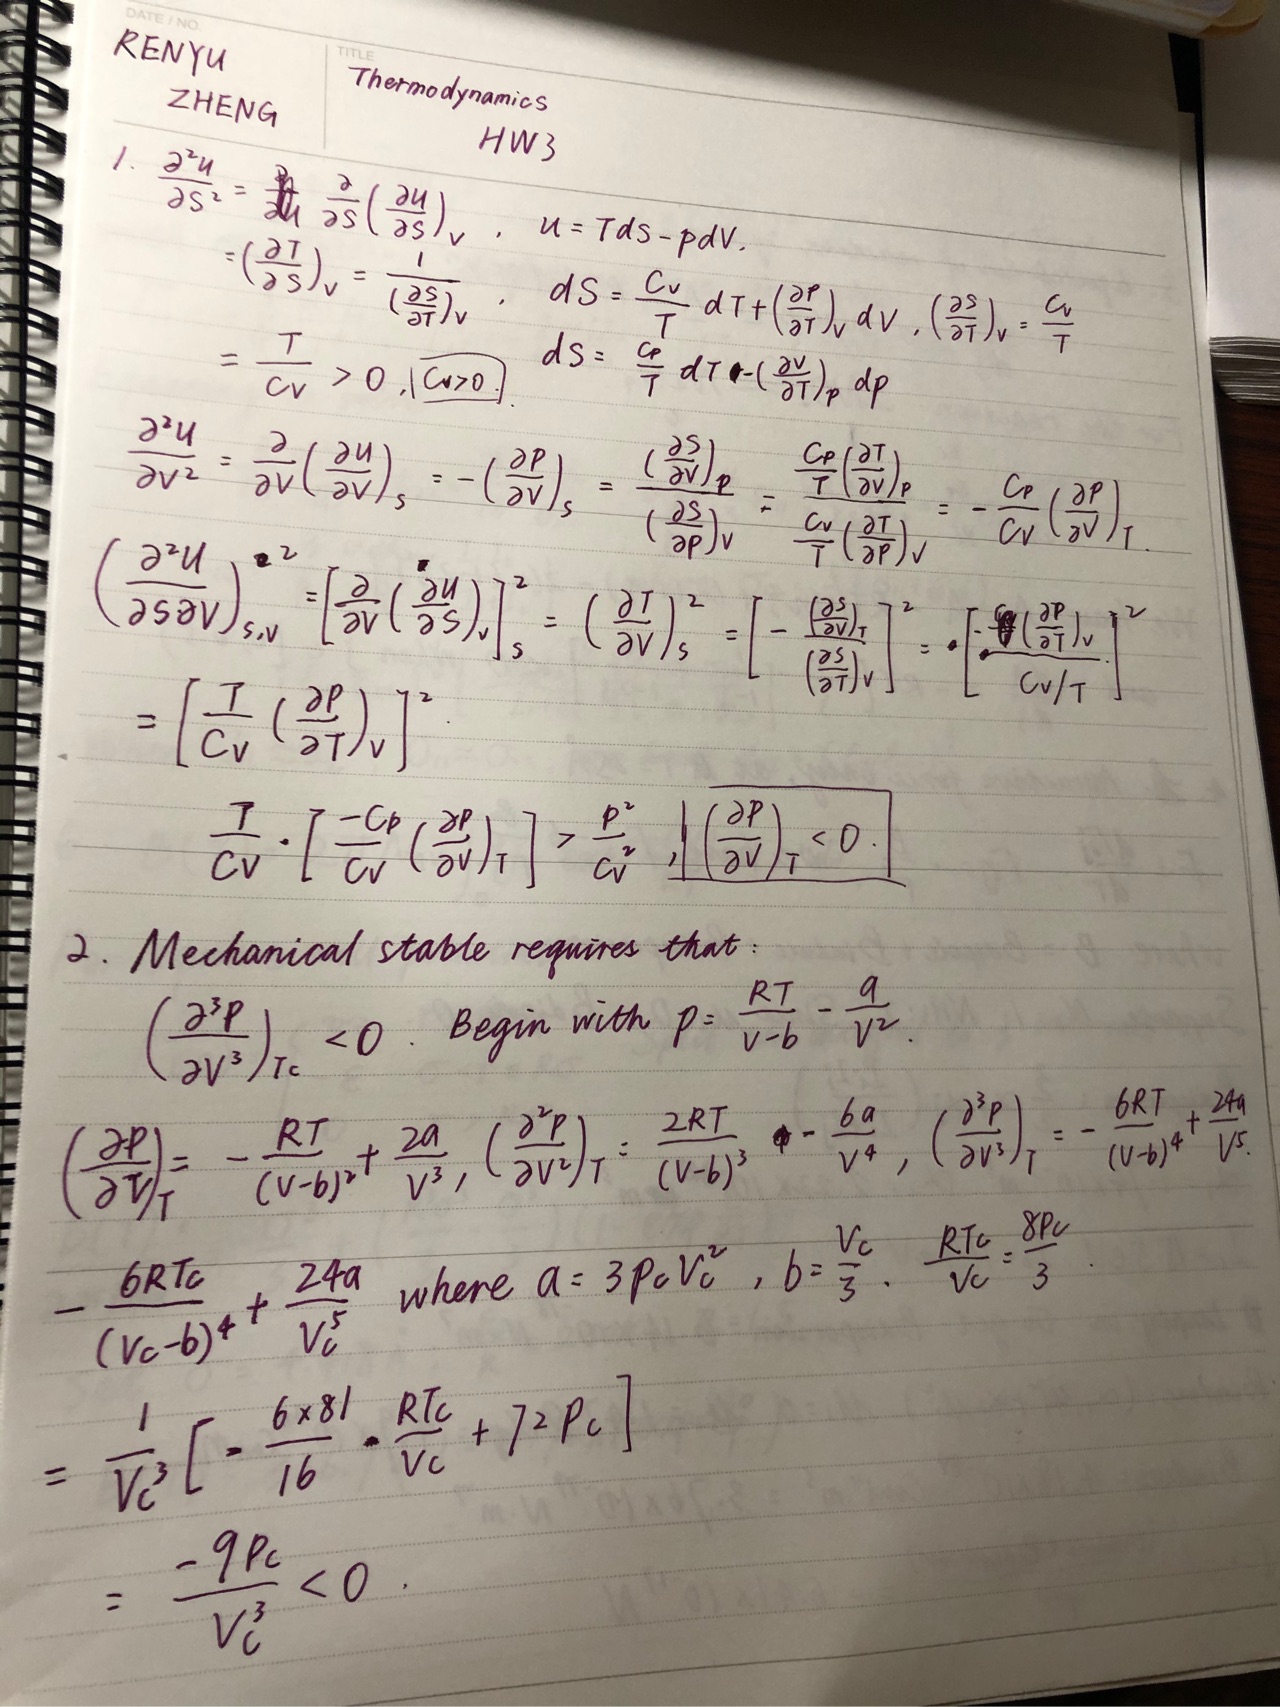 DATE / NO.
RENYU
ZHENG
TITLE
Thermodynamics
HW3
1. ∂²u/∂S² = ∂/∂S (∂u/∂S)_V , u = TdS - pdV.
= (∂T/∂S)_V = 1/(∂S/∂T)_V , dS = Cv/T dT + (∂P/∂T)_V dV , (∂S/∂T)_V = Cv/T
= T/Cv > 0 , Cv>0. dS = Cp/T dT - (∂V/∂T)_p dp
∂²u/∂V² = ∂/∂V (∂u/∂V)_S = -(∂P/∂V)_S = (∂S/∂V)_P / (∂S/∂P)_V = Cp/T (∂T/∂V)_P / Cv/T (∂T/∂P)_V = - Cp/Cv (∂P/∂V)_T .
(∂²u/∂S∂V)²_S,V = [∂/∂V (∂u/∂S)_V]²_S = (∂T/∂V)²_S = [- (∂S/∂V)_T / (∂S/∂T)_V]² = [- (∂P/∂T)_V / Cv/T]²
= [T/Cv (∂P/∂T)_V]² .
T/Cv · [-Cp/Cv (∂P/∂V)_T] > P²/Cv² , (∂P/∂V)_T < 0 .
2. Mechanical stable requires that :
(∂³P/∂V³)_Tc < 0 . Begin with P = RT/V-b - a/V² .
(∂P/∂V)_T = - RT/(V-b)² + 2a/V³ , (∂²P/∂V²)_T = 2RT/(V-b)³ - 6a/V⁴ , (∂³P/∂V³)_T = - 6RT/(V-b)⁴ + 24a/V⁵ .
- 6RTc/(Vc-b)⁴ + 24a/Vc⁵ where a = 3PcVc² , b = Vc/3 . RTc/Vc = 8Pc/3 .
= 1/Vc³ [- 6×81/16 · RTc/Vc + 72Pc]
= -9Pc/Vc³ < 0 .